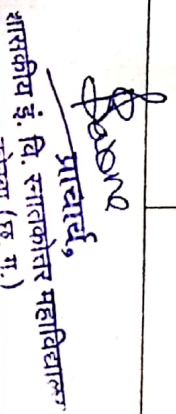 प्राचार्य,
शासकीय इं. वि. स्नातकोत्तर महाविद्यालय
(छ. ग.)